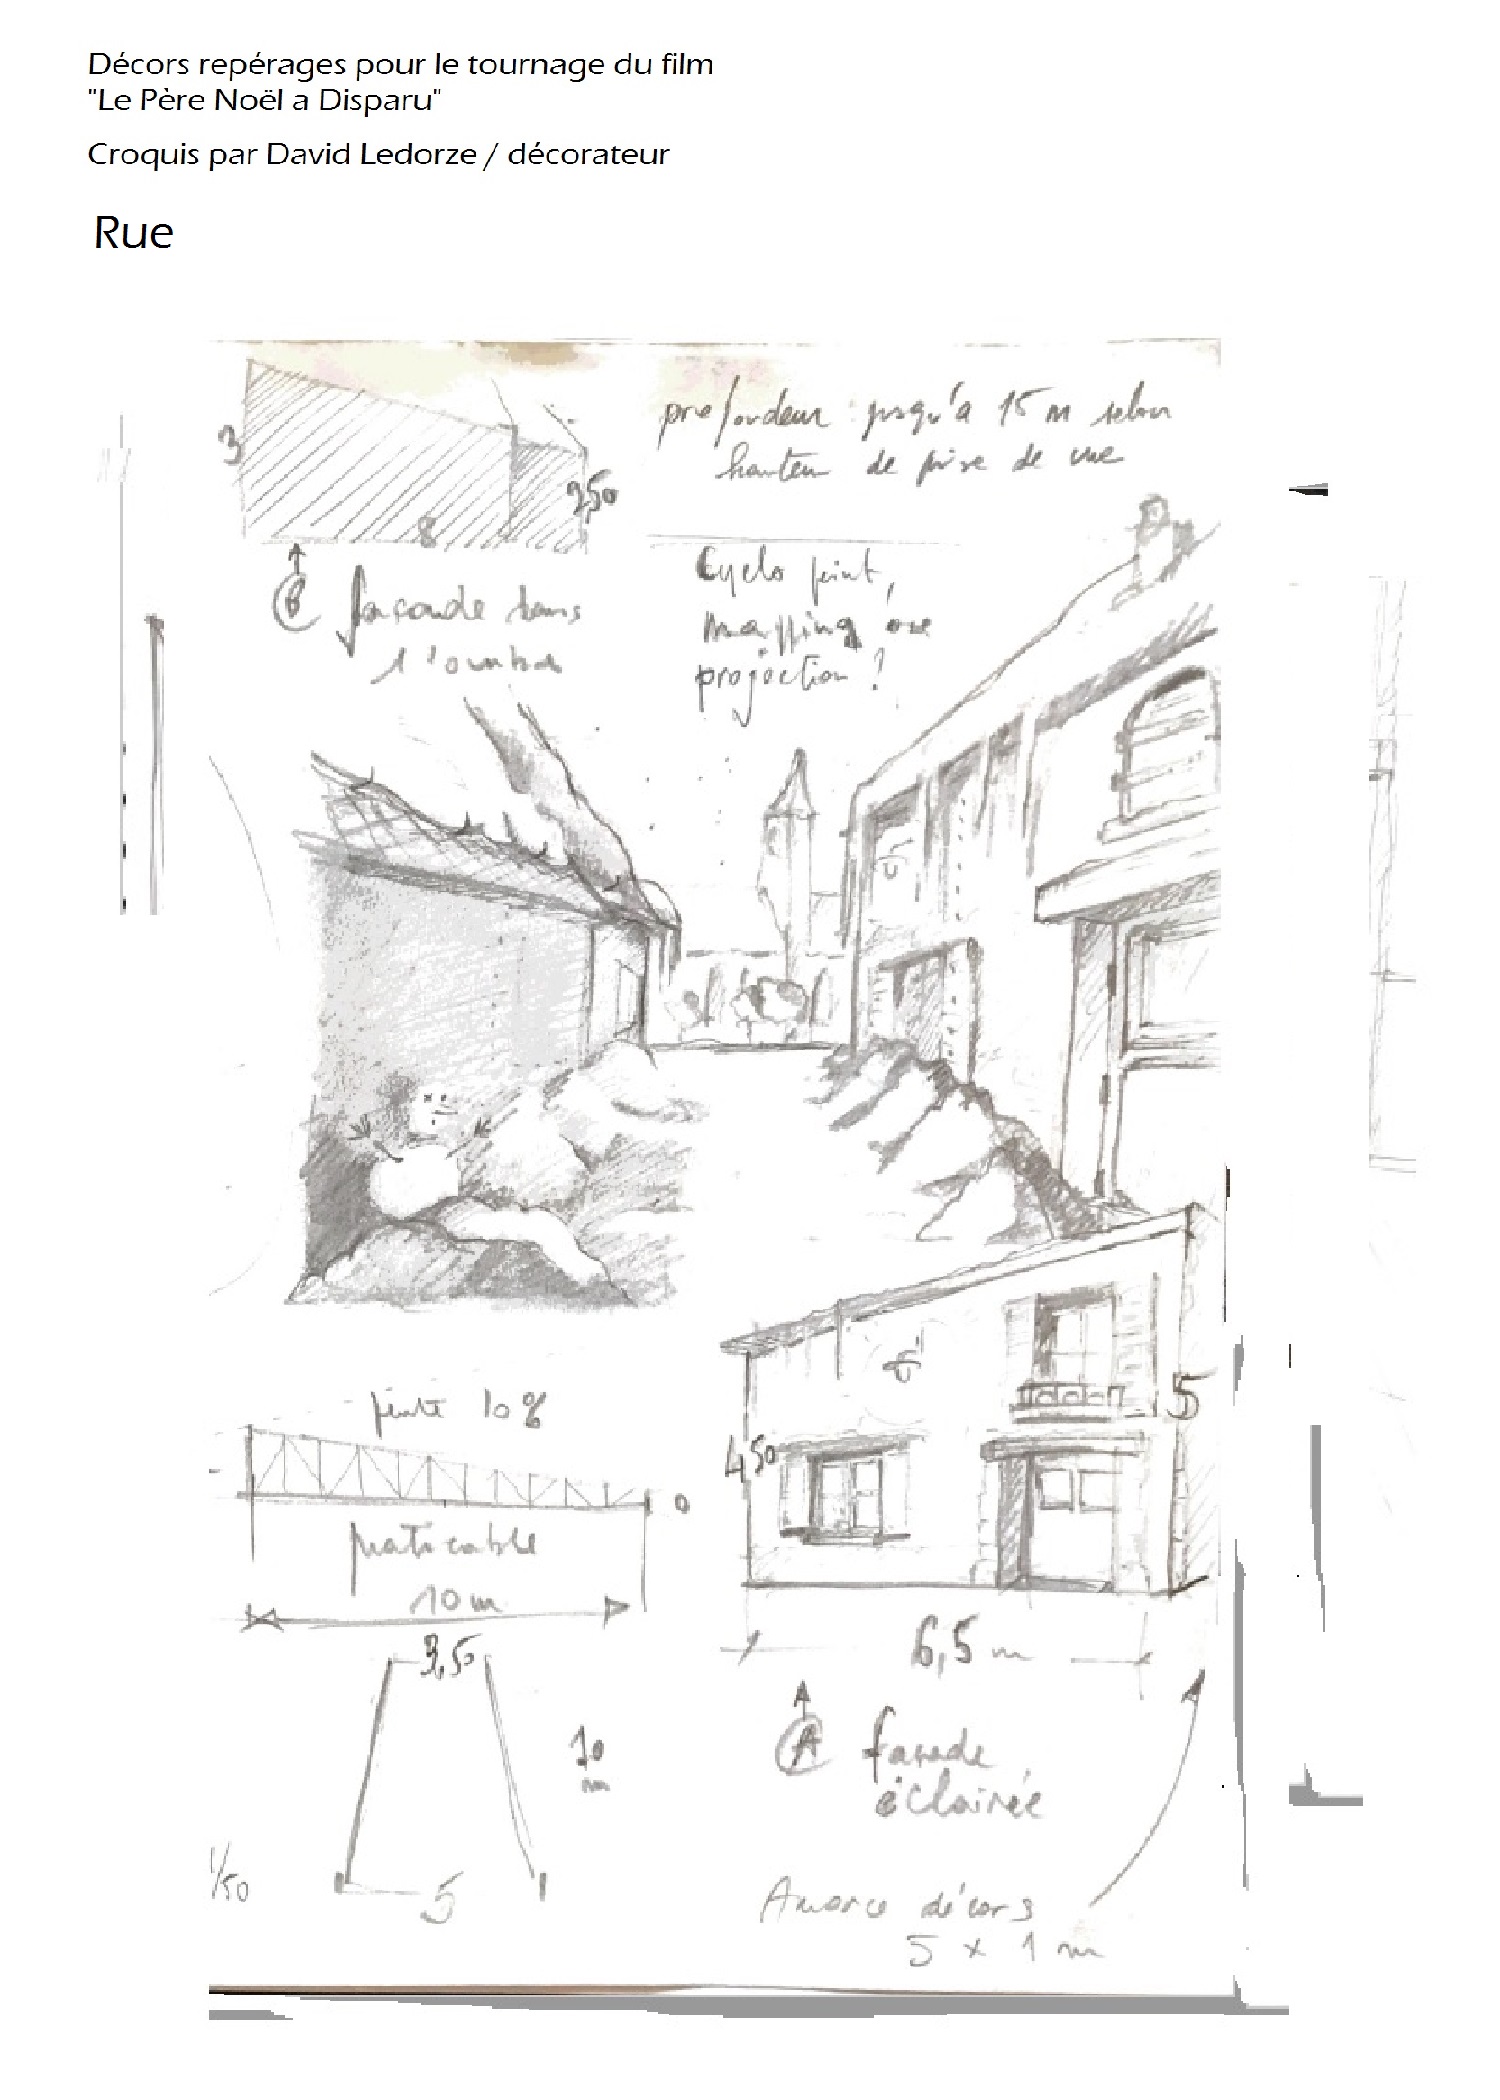 Décors repérages pour le tournage du film
"Le Père Noël a Disparu"
Croquis par David Ledorze / décorateur
Rue
profondeur jusqu'à 15 m selon
hauteur de prise de vue
3
2,50
8
B façade dans
l'ombre
Cyclo peint,
mapping ou
projection ?
pente 10%
0
praticable
10 m
4,50
5
6,5 m
3,50
10
m
5
1/50
A façade
éclairée
Amorce décors
5 x 1 m